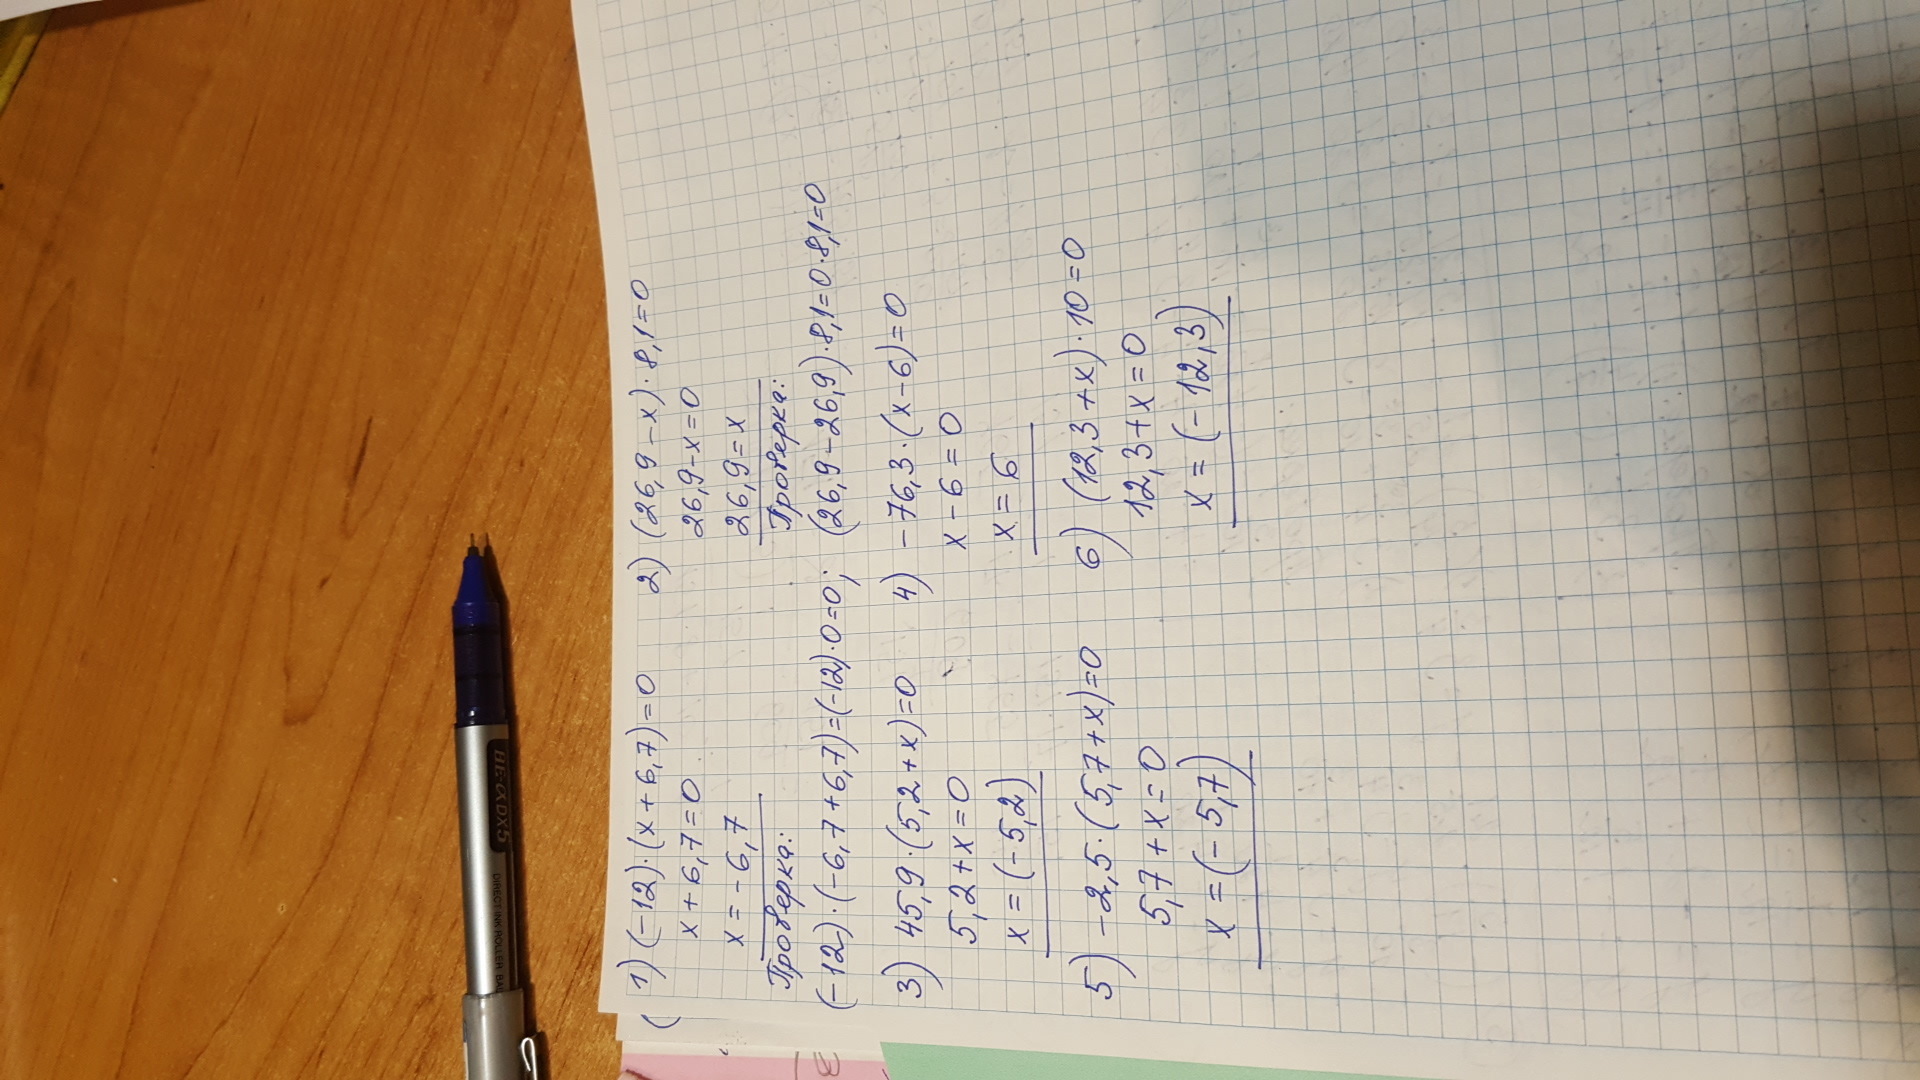 1) (-12)·(x+6,7)=0
x+6,7=0
x=-6,7
Проверка:
(-12)·(-6,7+6,7)=(-12)·0=0;
2) (26,9-x)·8,1=0
26,9-x=0
26,9=x
Проверка:
(26,9-26,9)·8,1=0·8,1=0
3) 45,9·(5,2+x)=0
5,2+x=0
x=(-5,2)
4) -76,3·(x-6)=0
x-6=0
x=6
5) -2,5·(5,7+x)=0
5,7+x=0
x=(-5,7)
6) (12,3+x)·10=0
12,3+x=0
x=(-12,3)
DX5
DIRECT INK ROLLER BAL